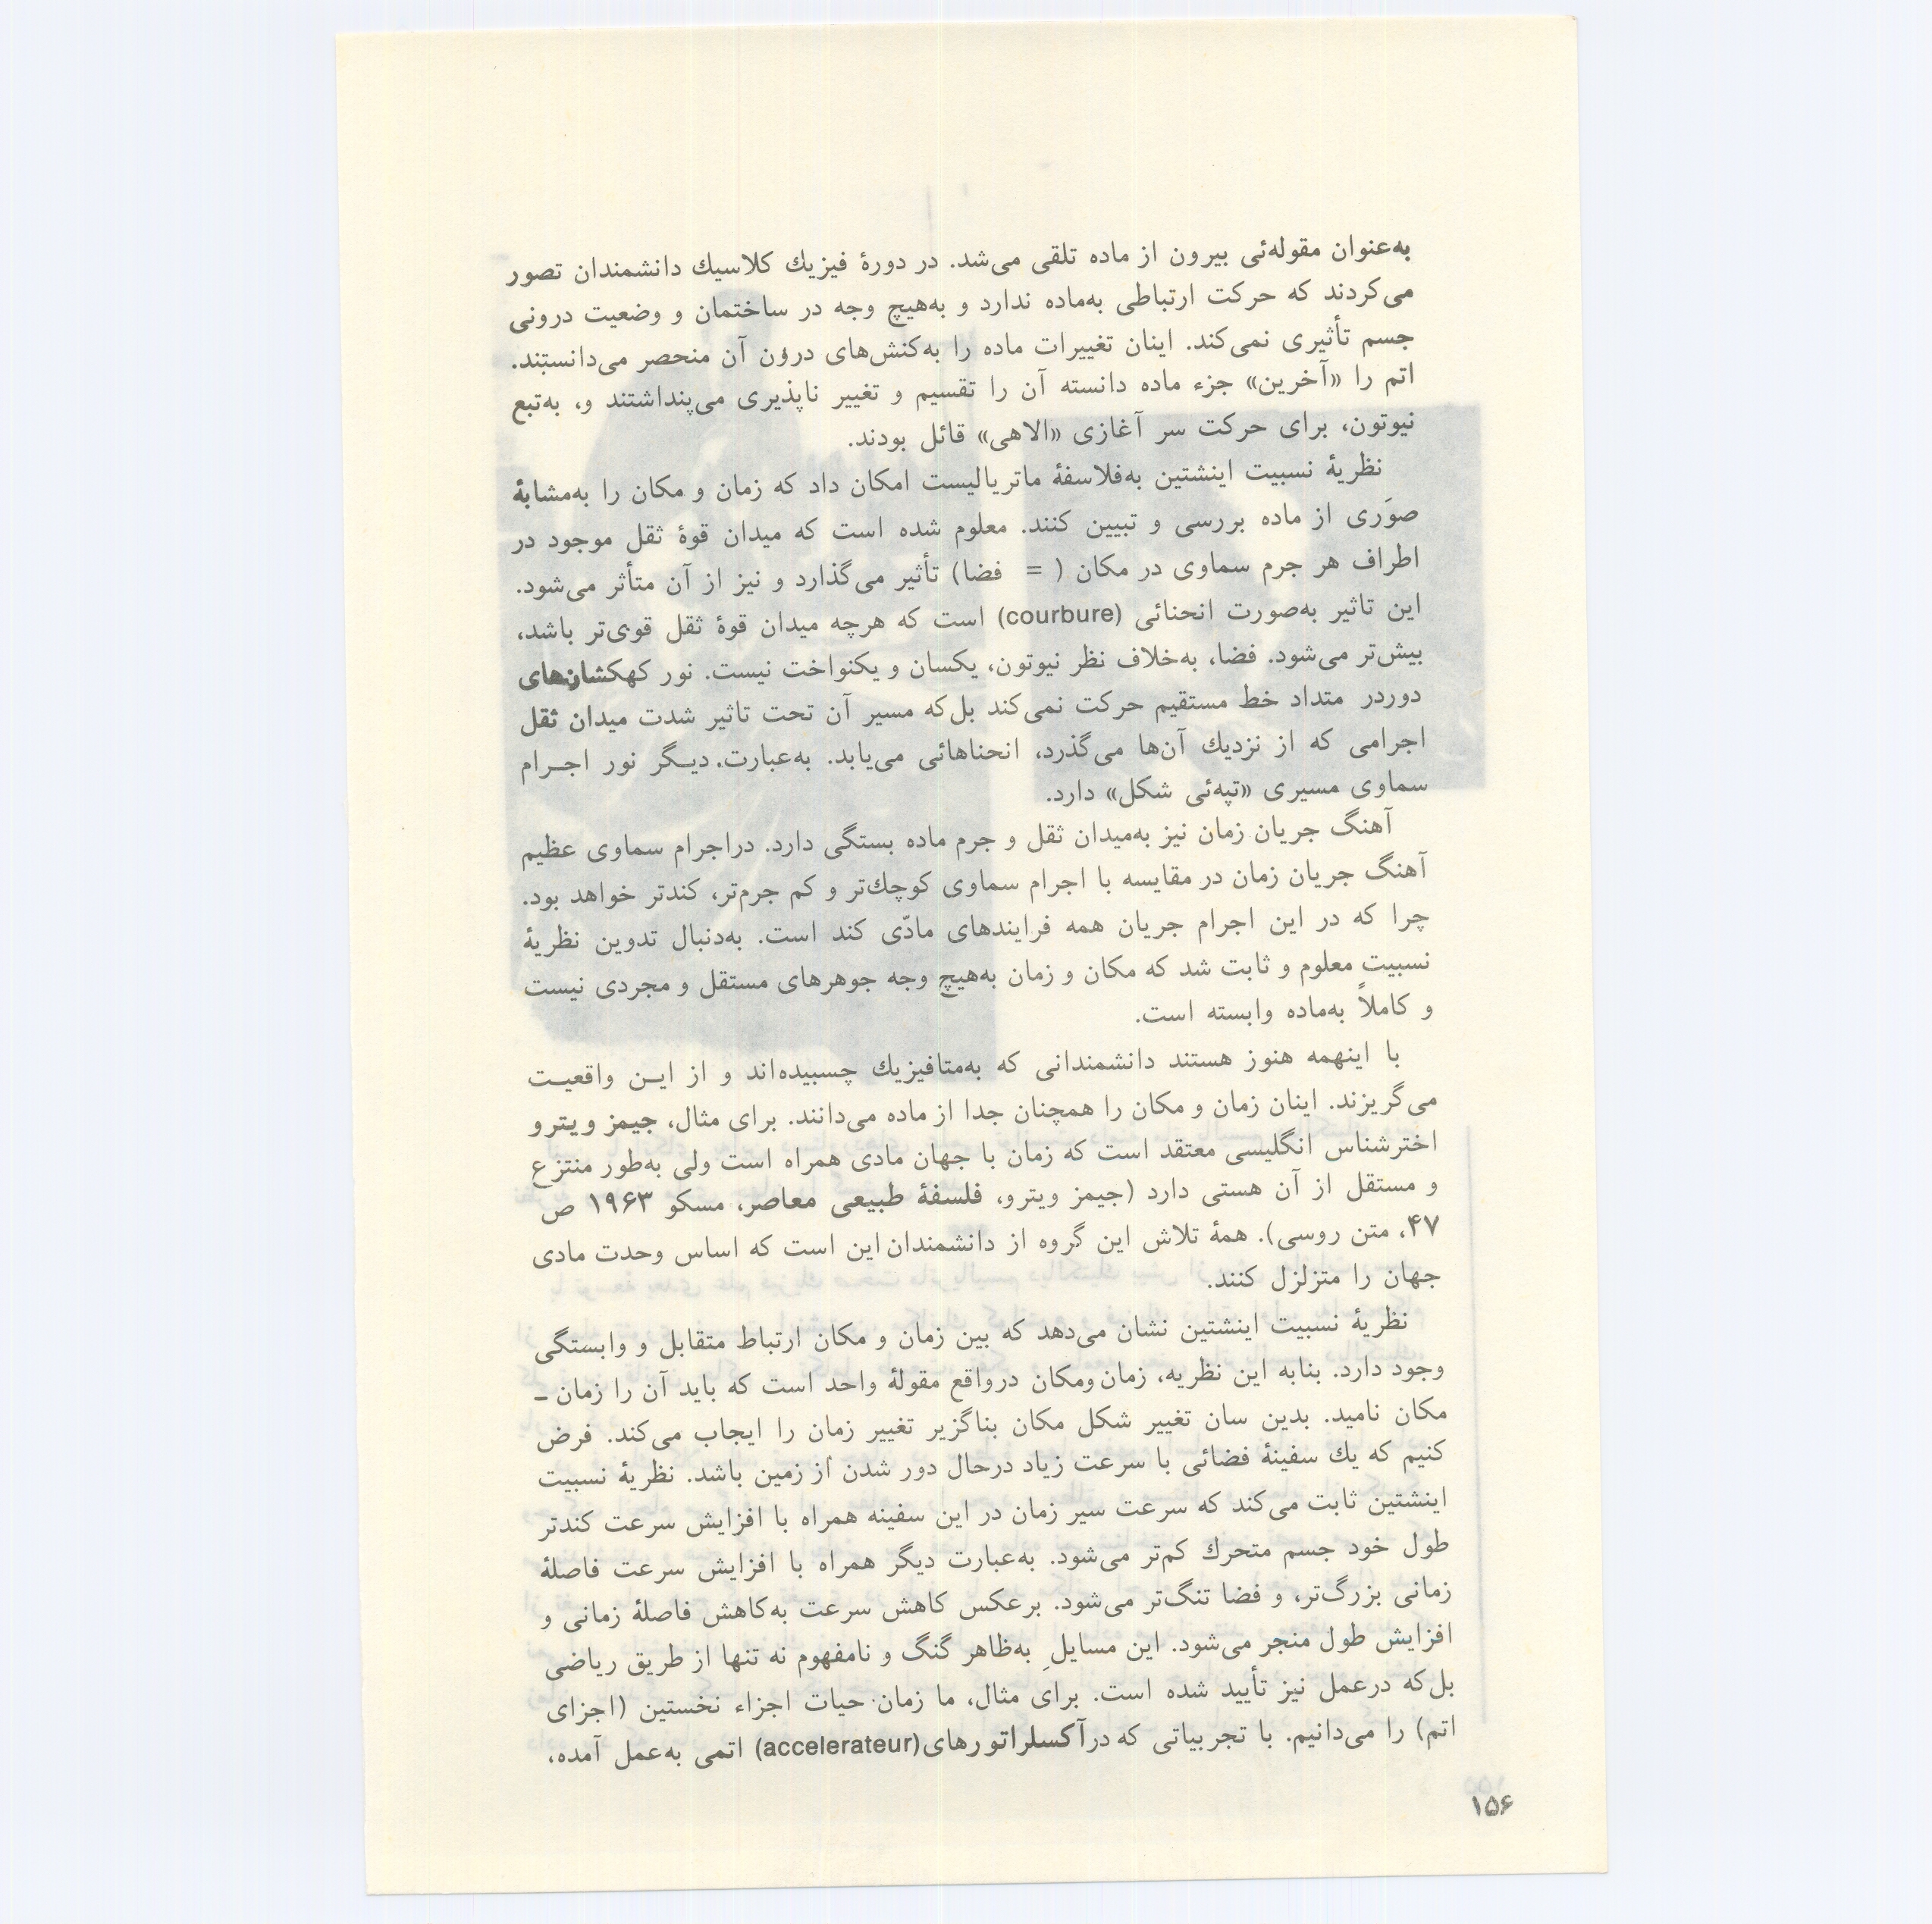 به‌عنوان مقوله‌ئی بیرون از ماده تلقی می‌شد. در دورهٔ فیزیك کلاسیك دانشمندان تصور
می‌کردند که حرکت ارتباطی به‌ماده ندارد و به‌هیچ وجه در ساختمان و وضعیت درونی
جسم تأثیری نمی‌کند. اینان تغییرات ماده را به‌کنش‌های درون آن منحصر می‌دانستند.
اتم را «آخرین» جزء ماده دانسته آن را تقسیم و تغییر ناپذیری می‌پنداشتند و، به‌تبع
نیوتون، برای حرکت سر آغازی «الاهی» قائل بودند.
نظریهٔ نسبیت اینشتین به‌فلاسفهٔ ماتریالیست امکان داد که زمان و مکان را به‌مشابهٔ
صوَری از ماده بررسی و تبیین کنند. معلوم شده است که میدان قوهٔ ثقل موجود در
اطراف هر جرم سماوی در مکان ( = فضا) تأثیر می‌گذارد و نیز از آن متأثر می‌شود.
این تاثیر به‌صورت انحنائی (courbure) است که هرچه میدان قوهٔ ثقل قوی‌تر باشد،
بیش‌تر می‌شود. فضا، به‌خلاف نظر نیوتون، یکسان و یکنواخت نیست. نور کهکشان‌های
دوردر متداد خط مستقیم حرکت نمی‌کند بل‌که مسیر آن تحت تاثیر شدت میدان ثقل
اجرامی که از نزدیك آن‌ها می‌گذرد، انحناهائی می‌یابد. به‌عبارت. دیـگر نور اجـرام
سماوی مسیری «تپه‌ئی شکل» دارد.
آهنگ جریان زمان نیز به‌میدان ثقل و جرم ماده بستگی دارد. دراجرام سماوی عظیم
آهنگ جریان زمان در مقایسه با اجرام سماوی کوچك‌تر و کم جرم‌تر، کندتر خواهد بود.
چرا که در این اجرام جریان همه فرایندهای مادّی کند است. به‌دنبال تدوین نظریهٔ
نسبیت معلوم و ثابت شد که مکان و زمان به‌هیچ وجه جوهرهای مستقل و مجردی نیست
و کاملاً به‌ماده وابسته است.
با اینهمه هنوز هستند دانشمندانی که به‌متافیزیك چسبیده‌اند و از ایـن واقعیـت
می‌گریزند. اینان زمان و مکان را همچنان جدا از ماده می‌دانند. برای مثال، جیمز ویترو
اخترشناس انگلیسی معتقد است که زمان با جهان مادی همراه است ولی به‌طور منتزع
و مستقل از آن هستی دارد (جیمز ویترو، فلسفهٔ طبیعی معاصر، مسکو ۱۹۶۳ ص
۴۷، متن روسی). همهٔ تلاش این گروه از دانشمندان این است که اساس وحدت مادی
جهان را متزلزل کنند.
نظریهٔ نسبیت اینشتین نشان می‌دهد که بین زمان و مکان ارتباط متقابل و وابستگی
وجود دارد. بنابه این نظریه، زمان‌ومکان درواقع مقولهٔ واحد است که باید آن را زمان ـ
مکان نامید. بدین سان تغییر شکل مکان بناگزیر تغییر زمان را ایجاب می‌کند. فرض
کنیم که یك سفینهٔ فضائی با سرعت زیاد درحال دور شدن از زمین باشد. نظریهٔ نسبیت
اینشتین ثابت می‌کند که سرعت سیر زمان در این سفینه همراه با افزایش سرعت کندتر
طول خود جسم متحرك کم‌تر می‌شود. به‌عبارت دیگر همراه با افزایش سرعت فاصلهٔ
زمانی بزرگ‌تر، و فضا تنگ‌تر می‌شود. برعکس کاهش سرعت به‌کاهش فاصلهٔ زمانی و
افزایش طول منجر می‌شود. این مسایلِ به‌ظاهر گنگ و نامفهوم نه تنها از طریق ریاضی
بل‌که درعمل نیز تأیید شده است. برای مثال، ما زمان حیات اجزاء نخستین (اجزای
اتم) را می‌دانیم. با تجربیاتی که درآکسلراتورهای(accelerateur) اتمی به‌عمل آمده،
۱۵۶